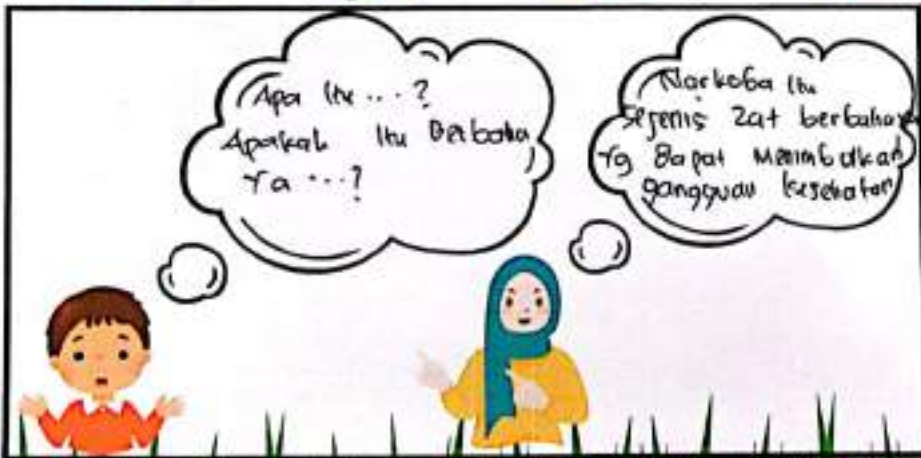 Apa itu ... ?
Apakah itu Berbaha
Ya ... ?
Narkoba itu
Sejenis Zat berbahaya
Yg Dapat Menimbulkan
gangguan kesehatan